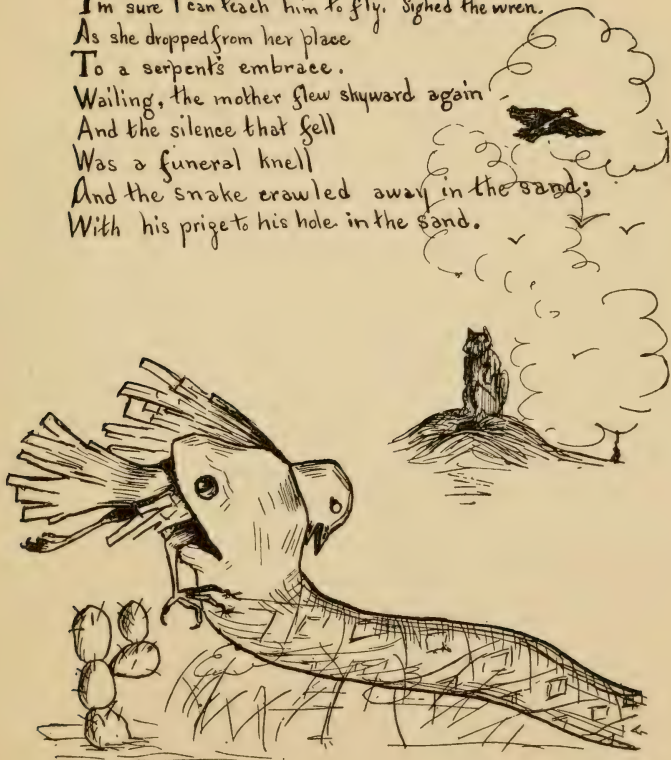 I'm sure I can teach him to fly. Sighed the wren.
As she dropped from her place
To a serpent's embrace.
Wailing, the mother flew skyward again
And the silence that fell
Was a funeral knell
And the snake crawled away in the sand;
With his prize to his hole in the sand.